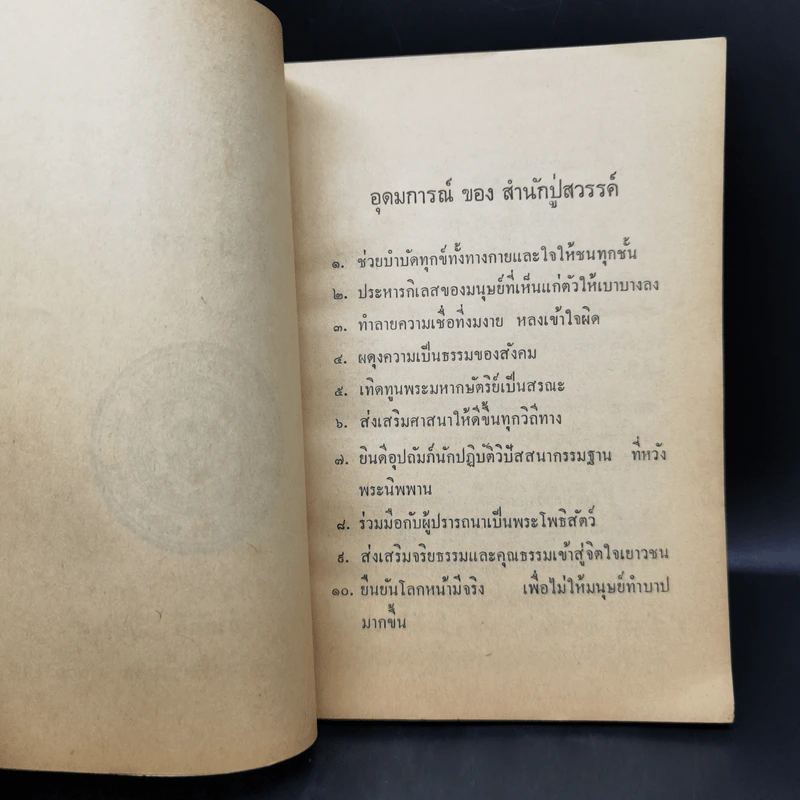 อุดมการณ์ ของ สำนักปู่สวรรค์
๑. ช่วยบำบัดทุกข์ทั้งทางกายและใจให้ชนทุกชั้น
๒. ประหารกิเลสของมนุษย์ที่เห็นแก่ตัวให้เบาบางลง
๓. ทำลายความเชื่อที่งมงาย หลงเข้าใจผิด
๔. ผดุงความเป็นธรรมของสังคม
๕. เทิดทูนพระมหากษัตริย์เป็นสรณะ
๖. ส่งเสริมศาสนาให้ดีขึ้นทุกวิถีทาง
๗. ยินดีอุปถัมภ์นักปฏิบัติวิปัสสนากรรมฐาน ที่หวัง
พระนิพพาน
๘. ร่วมมือกับผู้ปรารถนาเป็นพระโพธิสัตว์
๙. ส่งเสริมจริยธรรมและคุณธรรมเข้าสู่จิตใจเยาวชน
๑๐. ยืนยันโลกหน้ามีจริง เพื่อไม่ให้มนุษย์ทำบาป
มากขึ้น